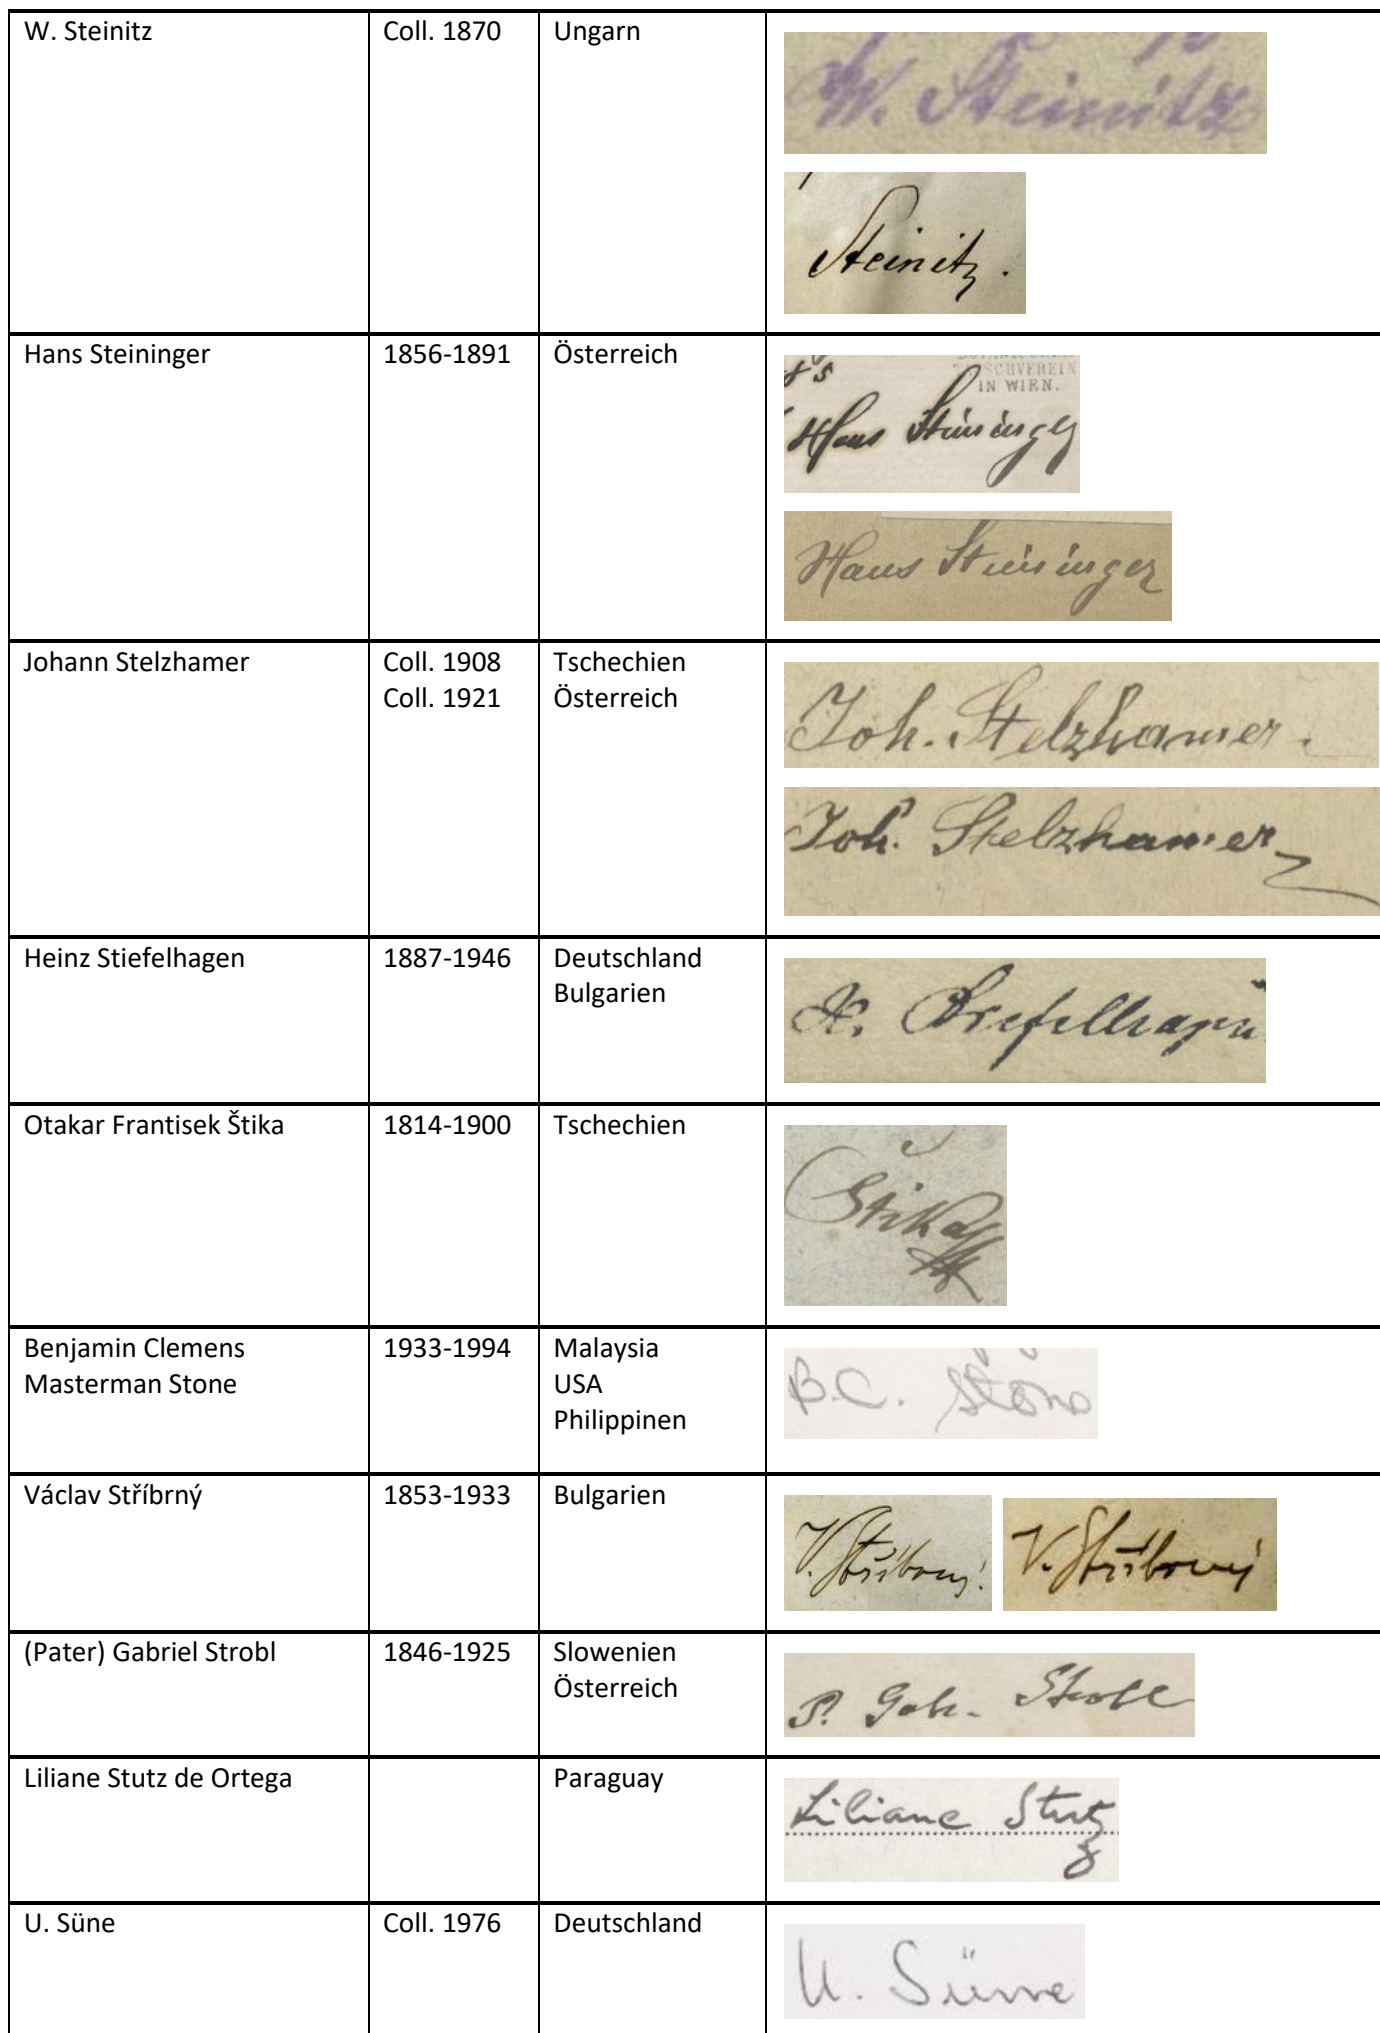 W. Steinitz Coll. 1870 Ungarn
W. Steinitz
Steinitz.
Hans Steininger 1856-1891 Österreich
IN WIEN.
Hans Steininger
Hans Steininger
Johann Stelzhamer Coll. 1908 Tschechien
Coll. 1921 Österreich
Joh. Stelzhamer.
Joh. Stelzhamer
Heinz Stiefelhagen 1887-1946 Deutschland
Bulgarien
H. Stiefelhagen
Otakar Frantisek Štika 1814-1900 Tschechien
Štika
Benjamin Clemens 1933-1994 Malaysia
Masterman Stone USA
Philippinen
B.C. Stone
Václav Stříbrný 1853-1933 Bulgarien
V. Stříbrný. V. Stříbrný
(Pater) Gabriel Strobl 1846-1925 Slowenien
Österreich
P. Gab. Strobl
Liliane Stutz de Ortega Paraguay
Liliane Stutz
U. Süne Coll. 1976 Deutschland
U. Süne